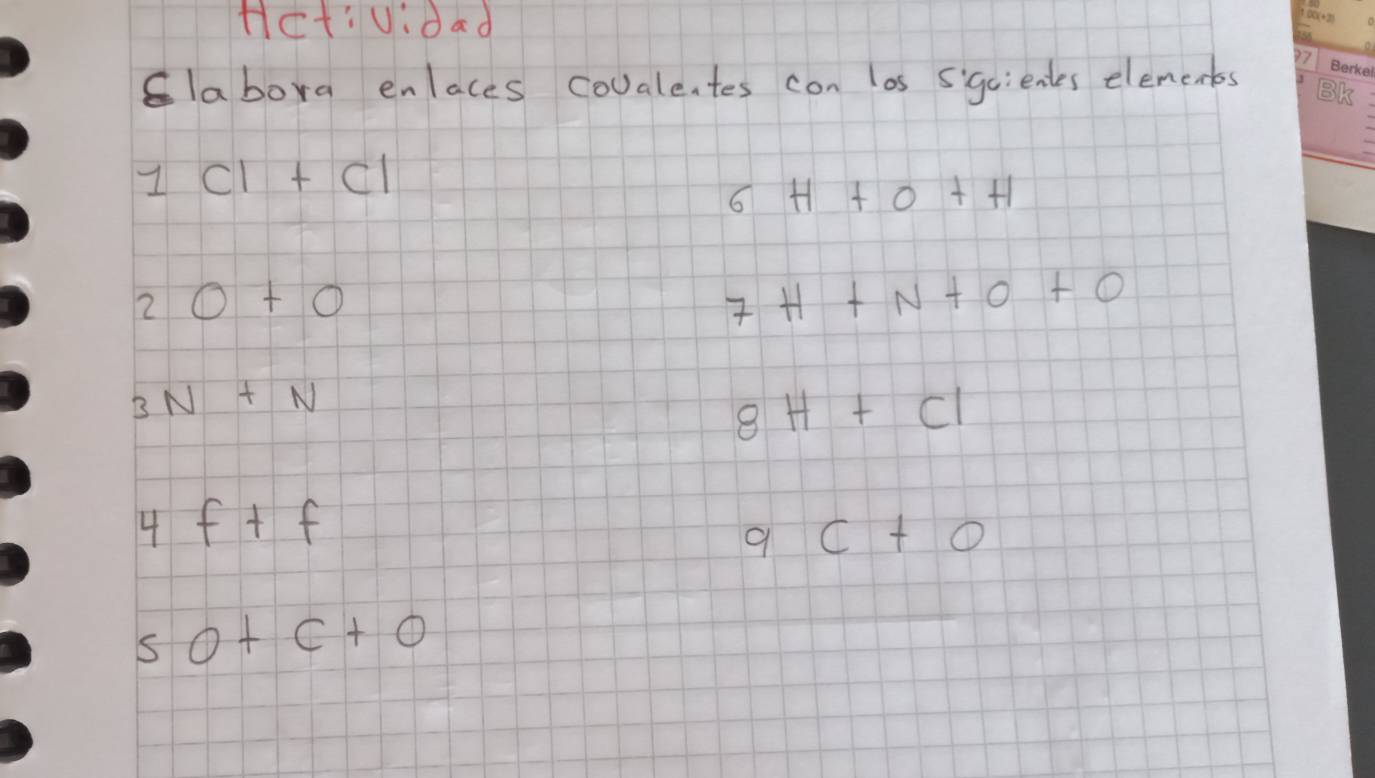 Actividad
Elabora enlaces covalentes con los siguientes elementos
1 Cl + Cl
2 O + O
3 N + N
4 f + f
5 O + C + O
6 H + O + H
7 H + N + O + O
8 H + Cl
9 C + O
1.00(+3)
97 Berkel
Bk